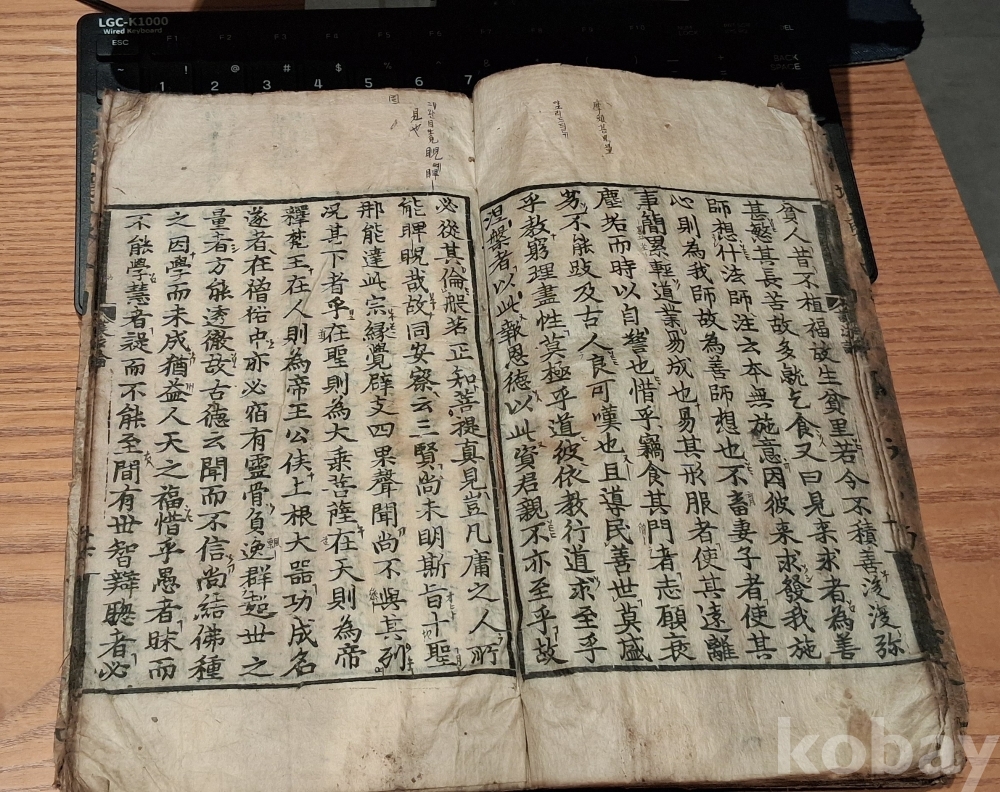 LGC-K1000
Wired Keyboard
ESC
F1
F2
F3
F4
F5
F6
BACK SPACE
1 2 3 4 5 6 7
貧人昔不植福故生貧里若今不積善後復弥
甚愍其長苦故多就乞食又曰見来求者為善
師想什法師注云本無施意因彼来求發我施
心則為我師故為善師想也不畜妻子者使其
事簡累輕道業易成也易其形服者使其遠離
塵垢而時以自警也惜乎竊食其門者志願衰
劣不能跂及古人良可嘆也且導民善世莫盛
乎教窮理盡性莫極乎道彼依教行道求至乎
涅槃者以此報恩德以此資君親不亦至乎故
必從其倫般若正知菩提真見豈凡庸之人所
能睥睨哉故同安察云三賢尚未明斯旨十聖
那能達此宗縁覺辟支四果聲聞尚不與其列
况其下者乎在聖則為大乗菩薩在天則為帝
釋梵王在人則為帝王公侯上根大器功成名
遂者在僧俗中亦必宿有靈骨負逸群超世之
量者方能透徹故古德云聞而不信尚結佛種
之因學而未成猶益人天之福惜乎愚者昧而
不能學慧者誤而不能至間有世智辯聡者必
kobay